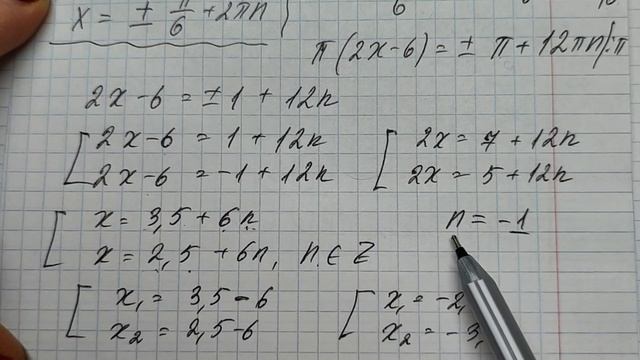 x = ± π/6 + 2πn
6
π(2x-6) = ± π + 12πn | :π
2x-6 = ±1 + 12n
[ 2x-6 = 1 + 12n
2x-6 = -1 + 12n
[ 2x = 7 + 12n
2x = 5 + 12n
[ x = 3,5 + 6n
x = 2,5 + 6n, n ∈ Z
n = -1
[ x₁ = 3,5 - 6
x₂ = 2,5 - 6
[ x₁ = -2,
x₂ = -3,